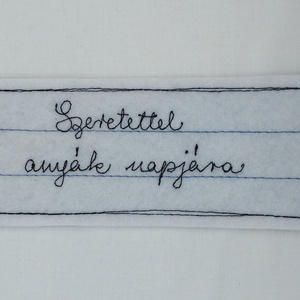 Szeretettel
anyák napjára